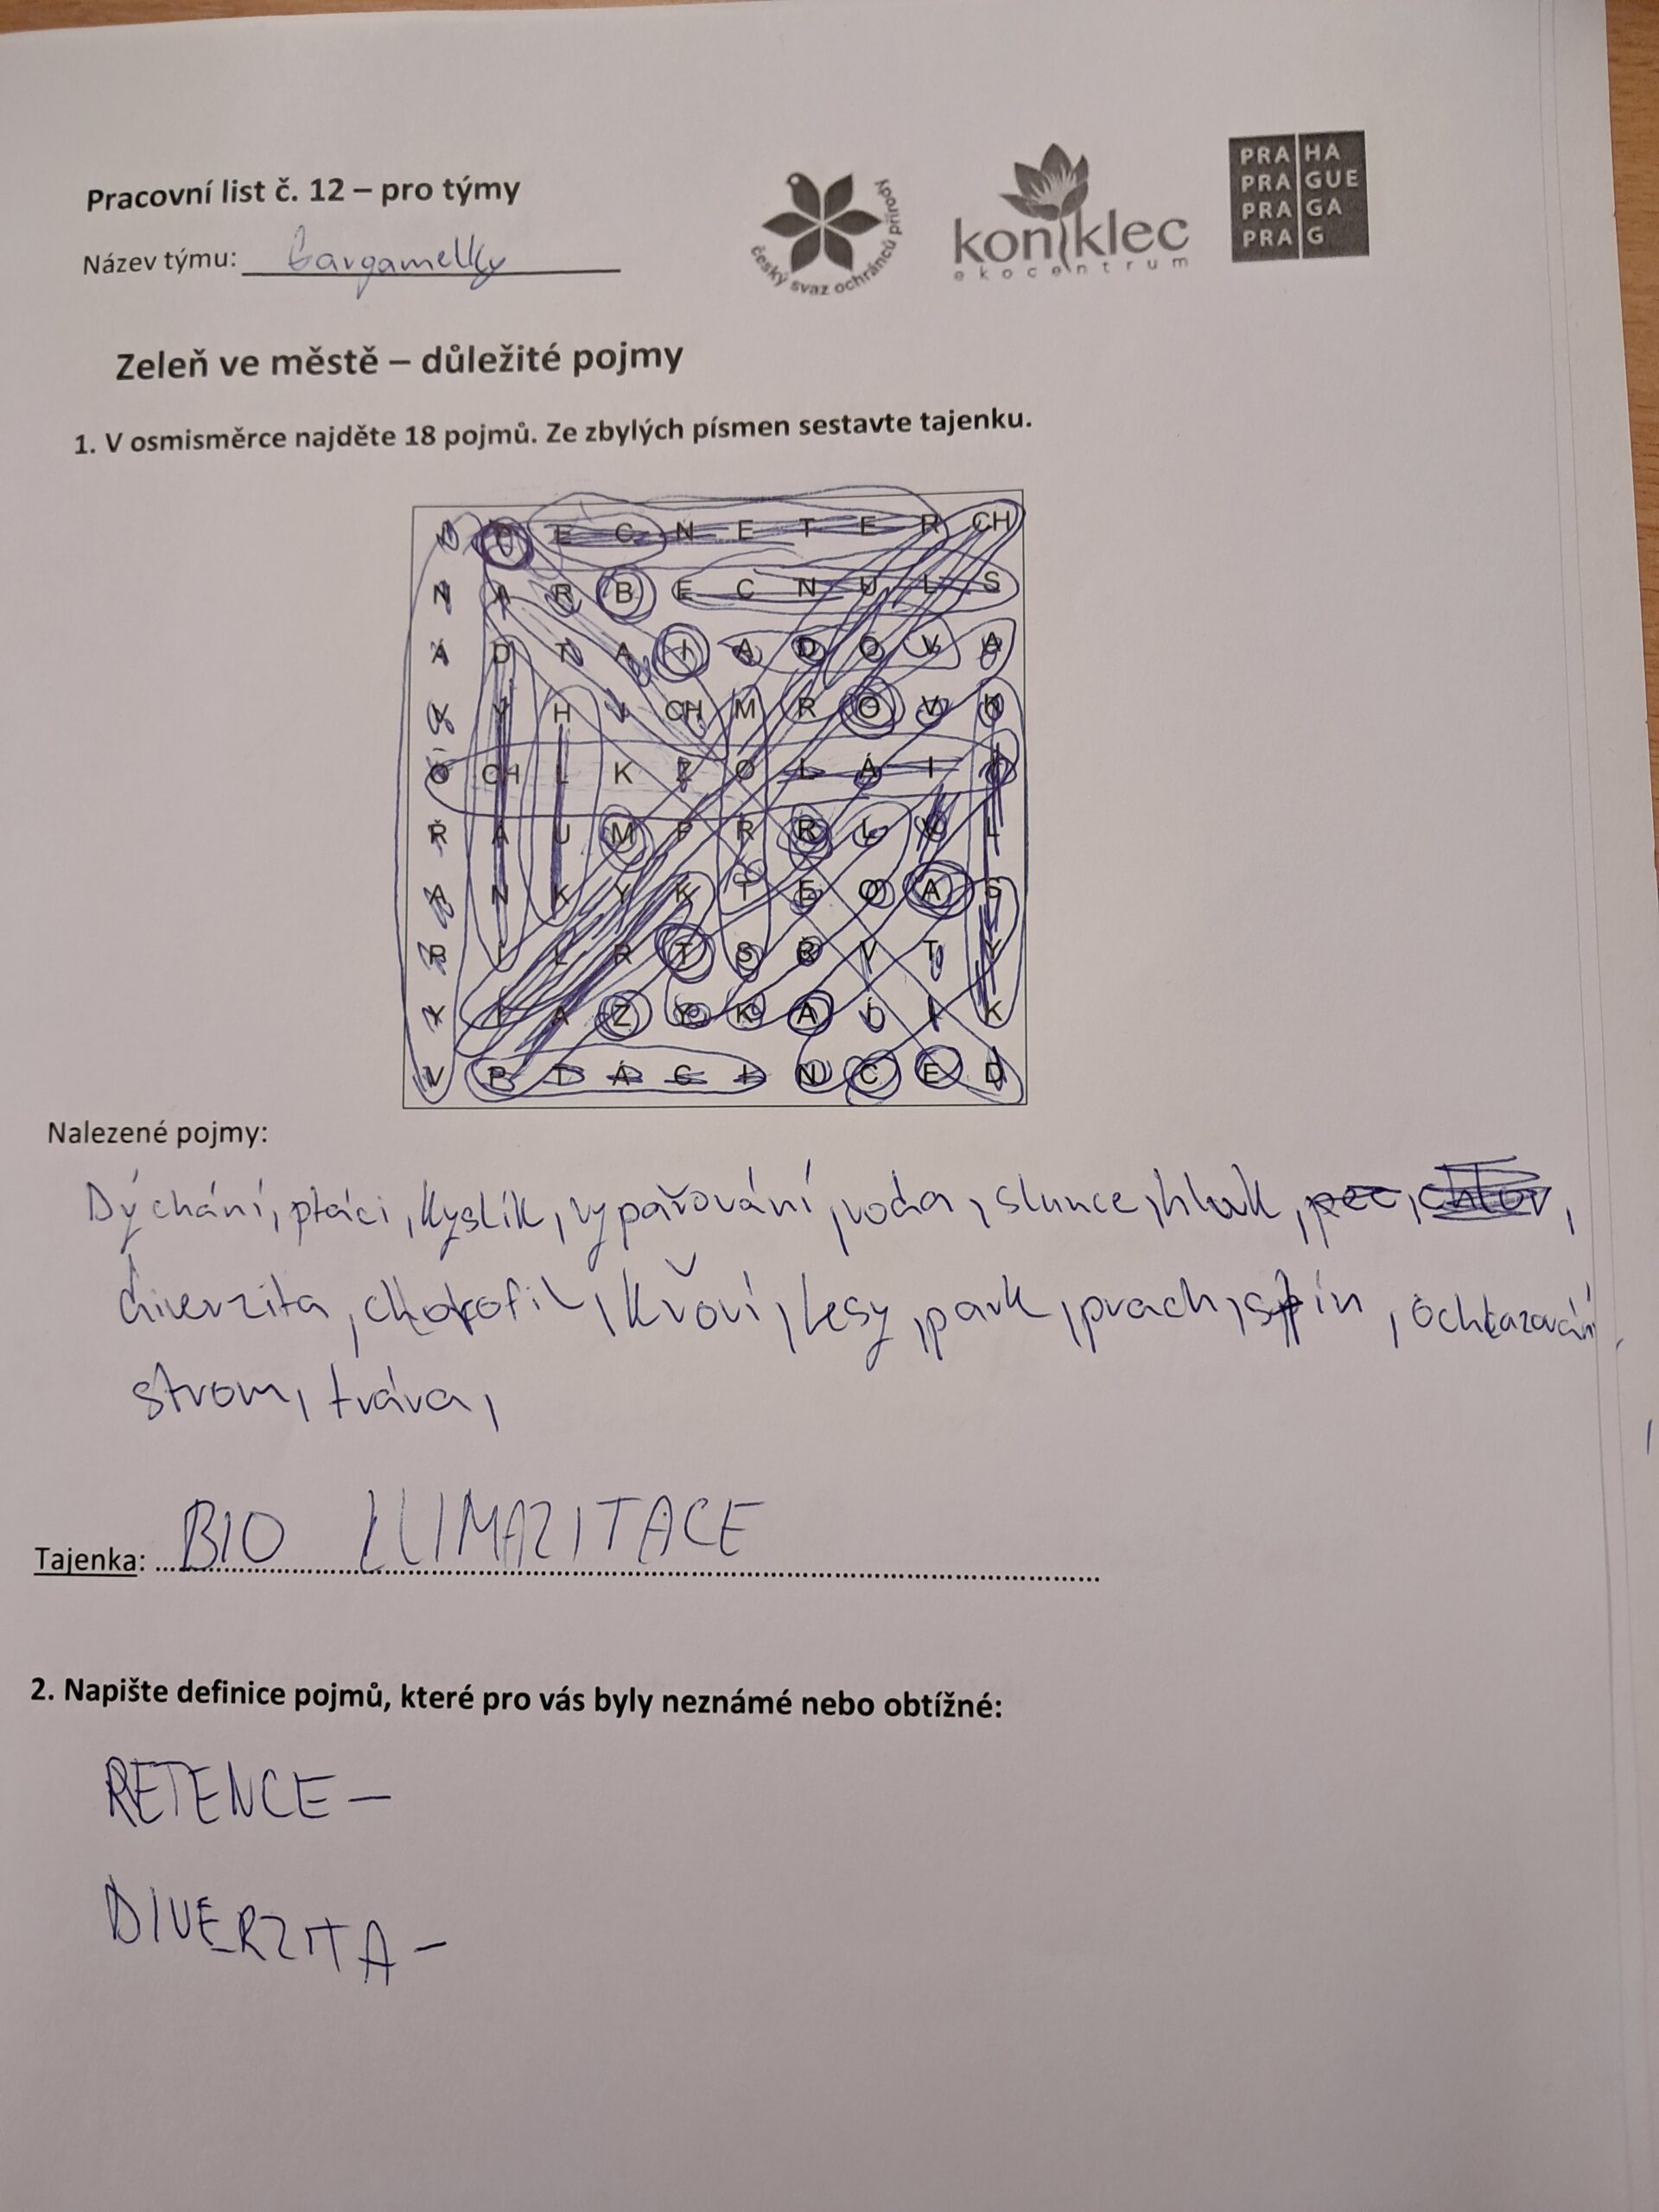 Pracovní list č. 12 – pro týmy
Název týmu: Gargamelky
český svaz ochránců přírody
koniklec
ekocentrum
PRA HA
PRA GUE
PRA GA
PRA G
Zeleň ve městě – důležité pojmy
1. V osmisměrce najděte 18 pojmů. Ze zbylých písmen sestavte tajenku.
E C N E T E R CH
N A R B E C N U L S
Á D T A I A D O V A
V Ý H I CH M R O V K
O CH L K Z O L Á I Í
Ř Á U M P R R L V L
A N K Y K T E O A S
P Í L R T S Ř V T Y
Y A Z Y K A Í I K
V P T Á C I N C E D
Nalezené pojmy:
Dýchání, ptáci, kyslík, vypařování, voda, slunce, hluk, pec, chlor,
diverzita, chlorofil, křoví, lesy, park, prach, stín, ochlazování
strom, tráva,
Tajenka: BIO KLIMAZITACE
2. Napište definice pojmů, které pro vás byly neznámé nebo obtížné:
RETENCE –
DIVERZITA –